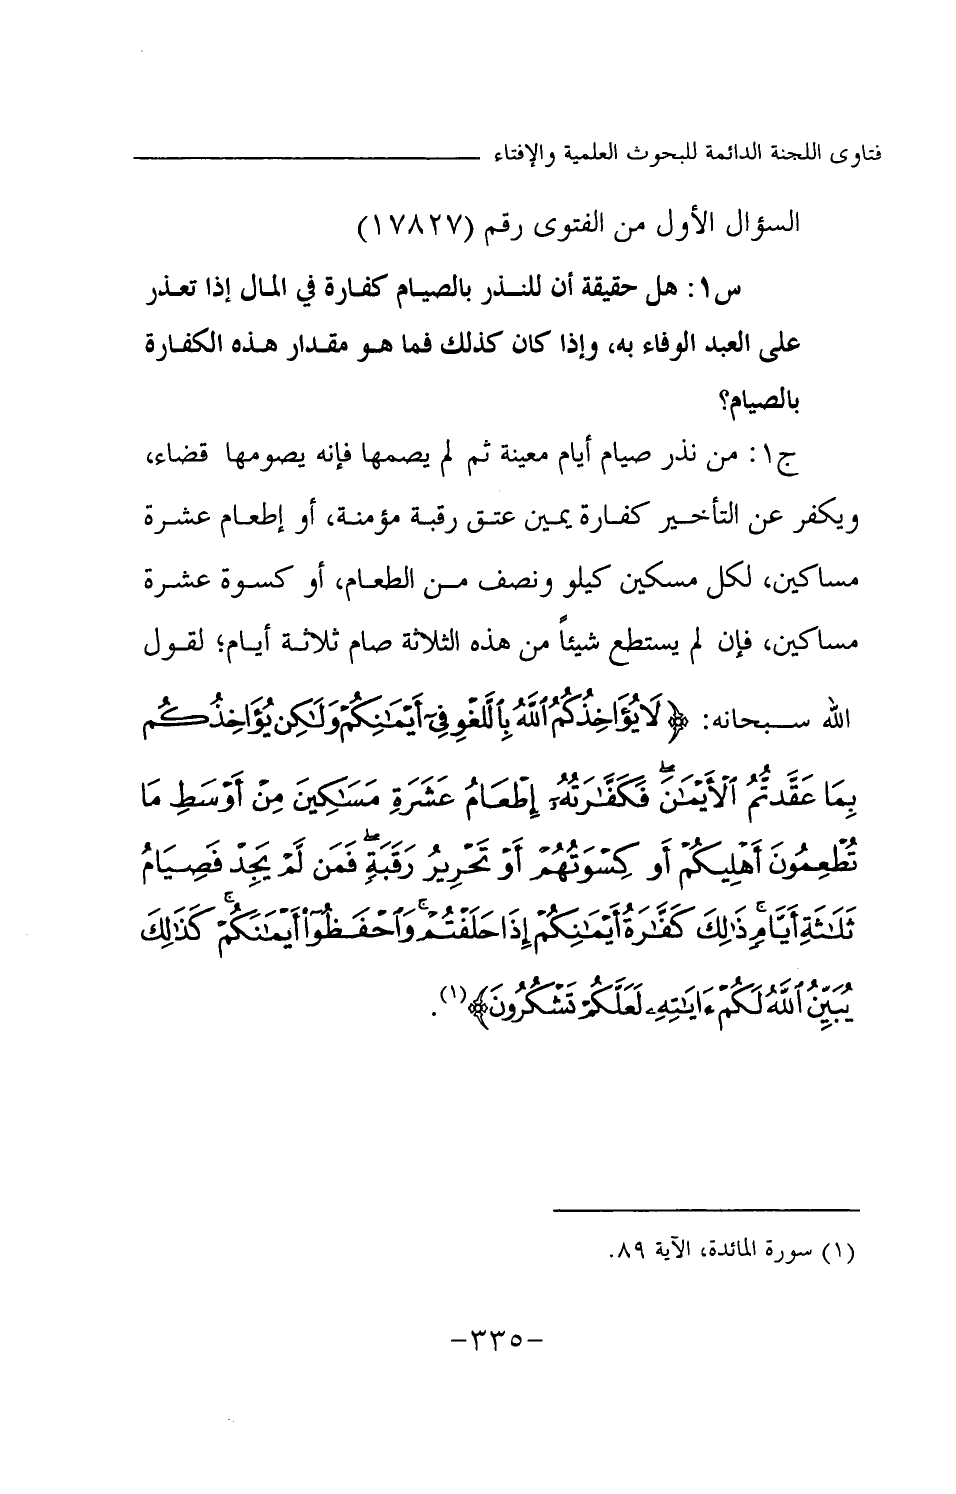 فتاوى اللجنة الدائمة للبحوث العلمية والإفتاء
السؤال الأول من الفتوى رقم (١٧٨٢٧)
س١: هل حقيقة أن للنـذر بالصيـام كفـارة في المـال إذا تعـذر
على العبد الوفاء به، وإذا كان كذلك فما هـو مقـدار هـذه الكفـارة
بالصيام؟
ج١: من نذر صيام أيام معينة ثم لم يصمها فإنه يصومها قضاء،
ويكفر عن التأخـير كفـارة يمـين عتـق رقبـة مؤمنـة، أو إطعـام عشـرة
مساكين، لكل مسكين كيلو ونصف مـن الطعـام، أو كسـوة عشـرة
مساكين، فإن لم يستطع شيئاً من هذه الثلاثة صام ثلاثـة أيـام؛ لقـول
الله سـبحانه: ﴿لَا يُؤَاخِذُكُمُ ٱللَّهُ بِٱللَّغْوِ فِىٓ أَيْمَـٰنِكُمْ وَلَـٰكِن يُؤَاخِذُكُم
بِمَا عَقَّدتُّمُ ٱلْأَيْمَـٰنَ ۖ فَكَفَّـٰرَتُهُۥٓ إِطْعَامُ عَشَرَةِ مَسَـٰكِينَ مِنْ أَوْسَطِ مَا
تُطْعِمُونَ أَهْلِيكُمْ أَوْ كِسْوَتُهُمْ أَوْ تَحْرِيرُ رَقَبَةٍ ۖ فَمَن لَّمْ يَجِدْ فَصِيَامُ
ثَلَـٰثَةِ أَيَّامٍ ۚ ذَٰلِكَ كَفَّـٰرَةُ أَيْمَـٰنِكُمْ إِذَا حَلَفْتُمْ ۚ وَٱحْفَظُوٓا۟ أَيْمَـٰنَكُمْ ۚ كَذَٰلِكَ
يُبَيِّنُ ٱللَّهُ لَكُمْ ءَايَـٰتِهِۦ لَعَلَّكُمْ تَشْكُرُونَ﴾(١).
(١) سورة المائدة، الآية ٨٩.
-٣٣٥-